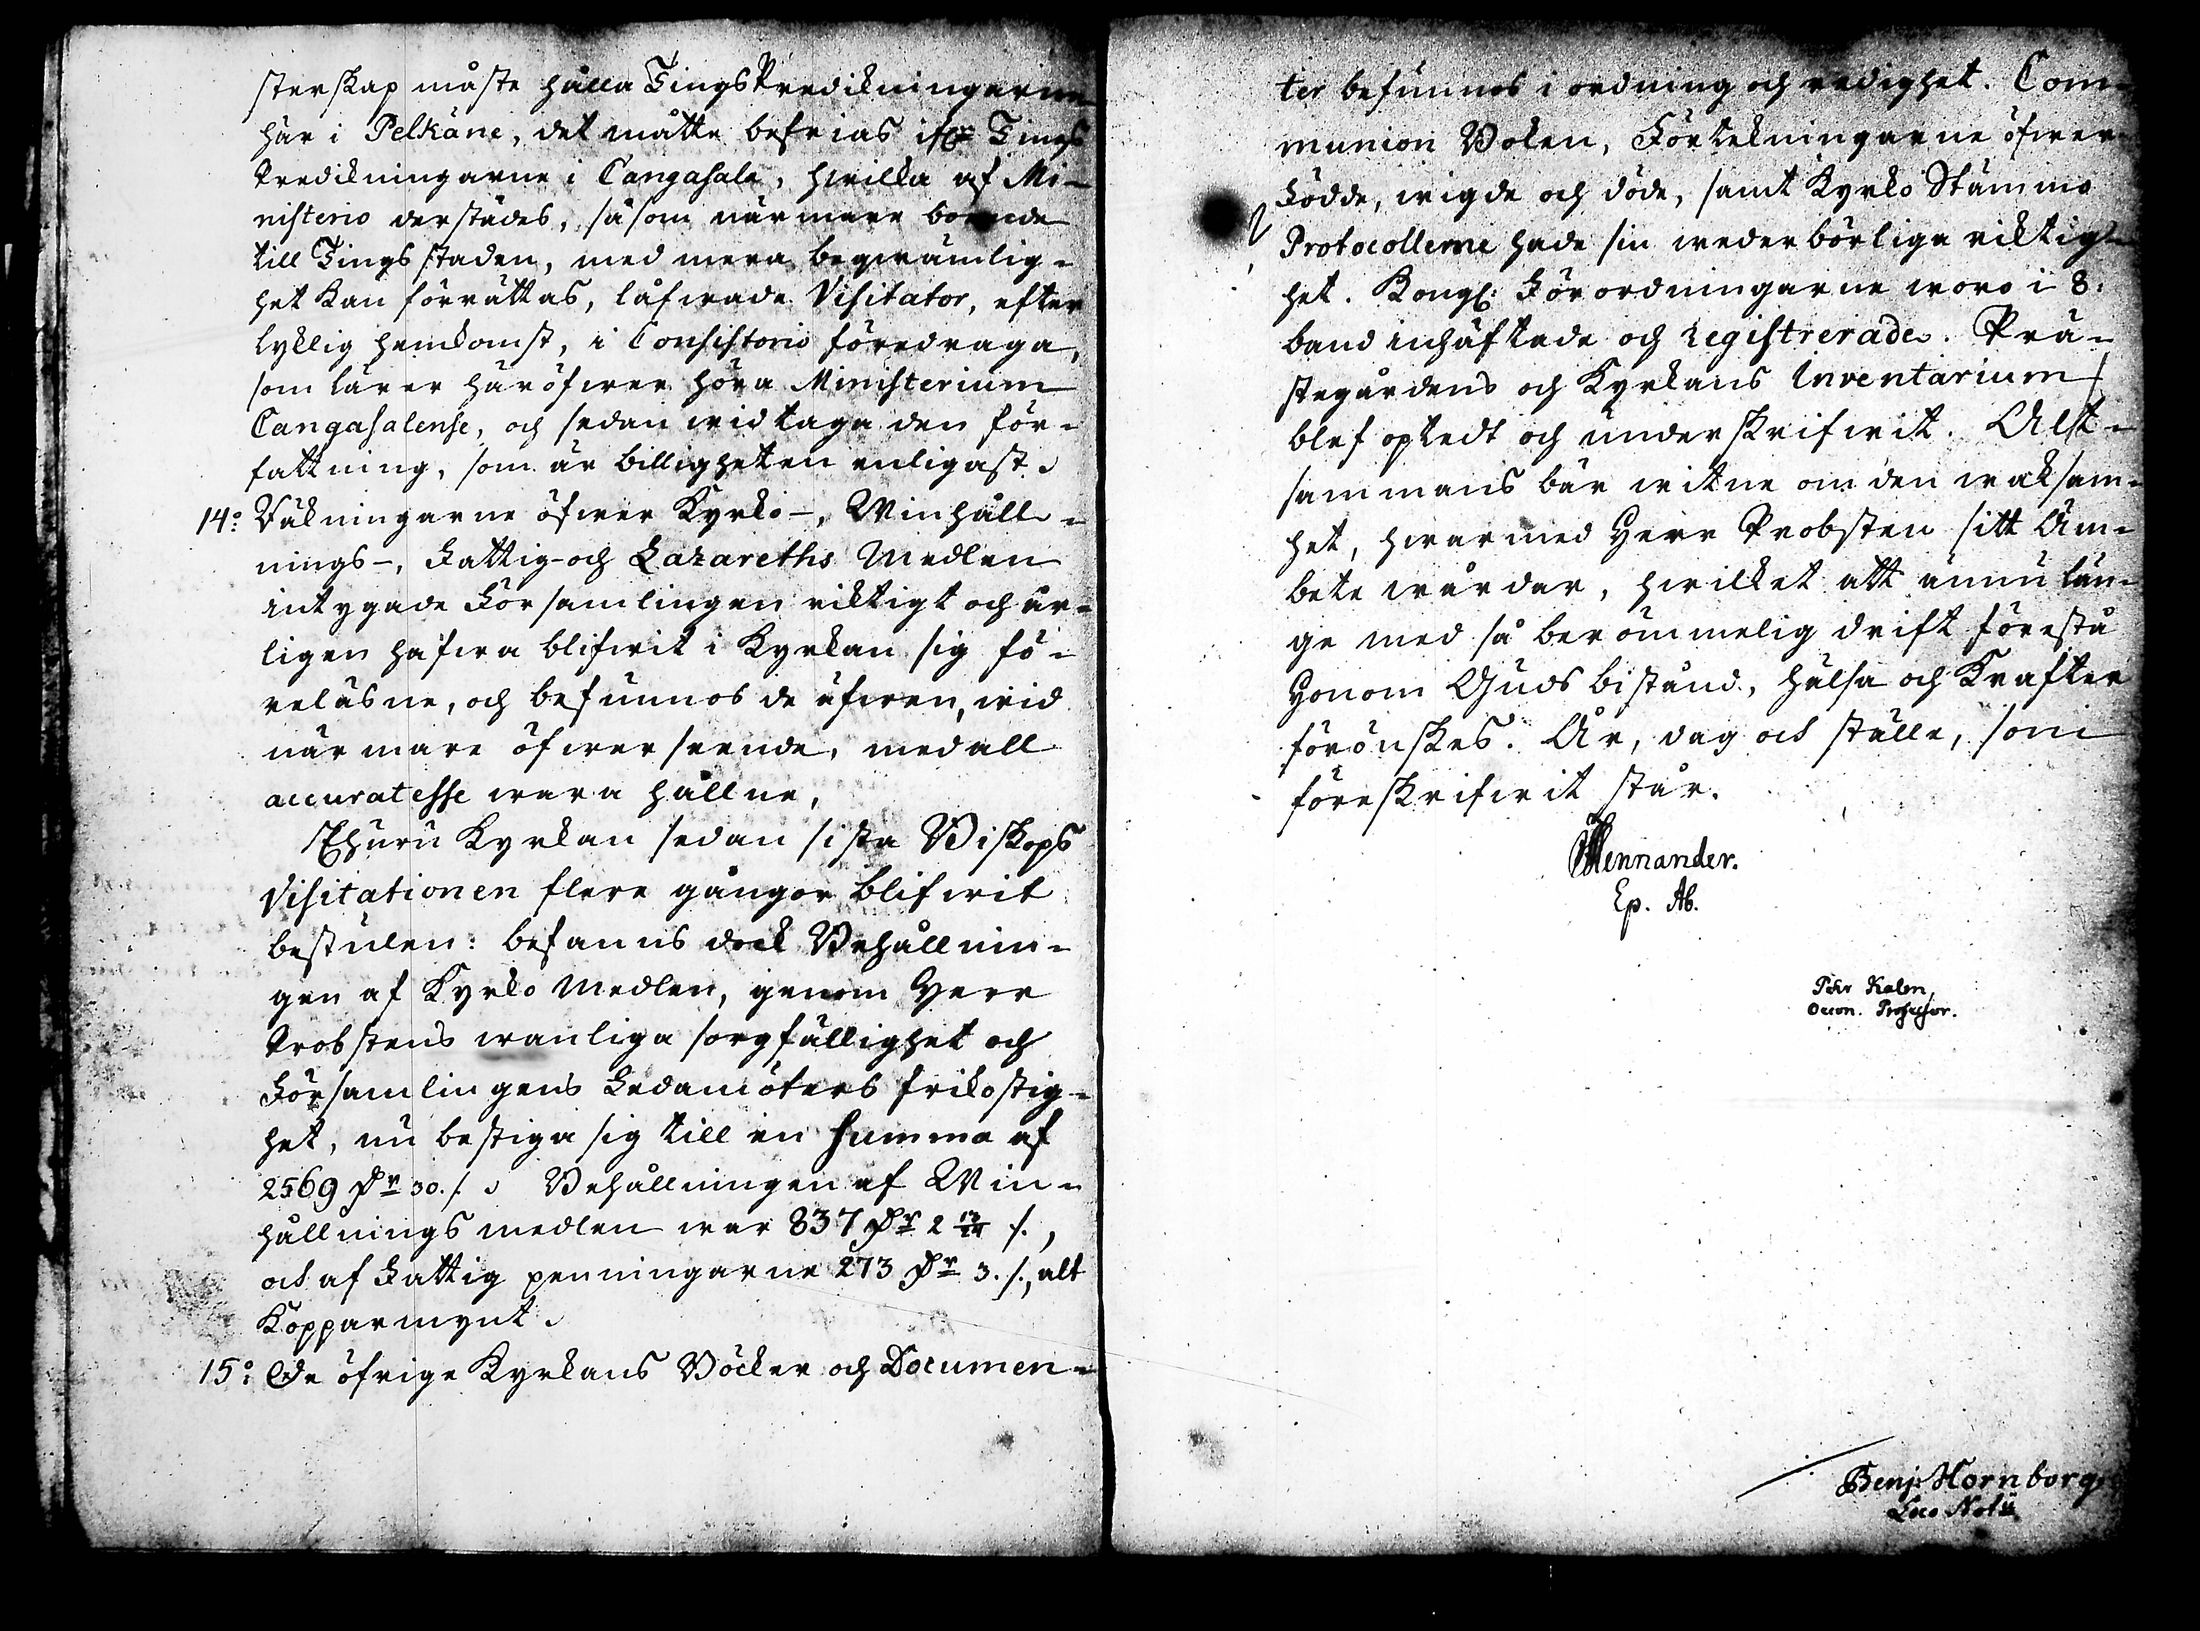 sterskap måste hålla TingsPredikningarne
här i Pelkäne, det måtte befrias ifr. Tings
Predikningarne i Cangasala, hwilka af Mi-
nisterio derstädes, såsom närmare boende
till Tingsstaden, med mera beqwämlig-
het kan förrättas, låfwade Visitator, efter
lyklig hemkomst, i Consistorio föredraga,
som lärer häröfwer höra Ministerium
Cangasalense, och sedan widtaga den för-
fattning, som är billigheten enligast.
14:o Räkningarne öfwer Kyrko-, Winhåll-
nings-, Fattig- och Lazareths Medlen
intygade Församlingen riktigt och år-
ligen hafwa blifwit i Kyrkan sig fö-
reläsne, och befunnos de äfwen, wid
närmare öfwerseende, med all
accuratesse wara hållne,
Ehuru Kyrkan sedan sista Biskops
Visitationen flere gångor blifwit
bestulen: befanns dock Behållnin-
gen af Kyrko Medlen, genom Herr
Probstens wanliga sorgfällighet och
Församlingens Ledamöters frikostig-
het, nu bestiga sig till en summa af
2569 Dr 30./. Behållningen af Win-
hållnings medlen war 837 Dr 2 13/24 /.,
och af Fattig penningarne 273 Dr 3./., alt
Kopparmynt.
15:o De öfrige Kyrkans Böcker och Documen-
ter befunnos i ordning och redighet. Com-
munion Boken, Förtekningarne öfwer
Födde, wigde och döde, samt Kyrko Stämmo
Protocollerne hade sin wederbörliga riktig-
het. Kongl: Förordningarne woro i 8:
band inhäftade och Registrerade. Prä-
stegårdens och Kyrkans Inventarium
blef opledt och underskrifwit. Alt-
sammans bär witne om den waksam-
het, hwarmed Herr Probsten sitt Äm-
bete wårdar, hwilket att ännu län-
ge med så berömmelig drift förestå
Honom Guds bistånd, hälsa och Krafter
förönskes. År, dag och ställe, som
föreskrifwit står.
Mennander.
Ep. Ab.
Pehr Kalm,
Oecon. Professor.
Benj. Hornborg
Loco Notii